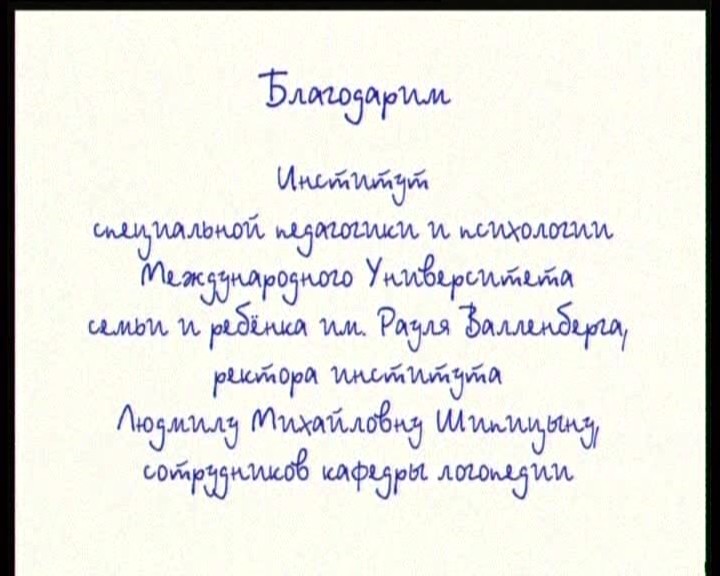 Благодарим
Институт
специальной педагогики и психологии
Международного Университета
семьи и ребёнка им. Рауля Валленберга,
ректора института
Людмилу Михайловну Шипицыну,
сотрудников кафедры логопедии